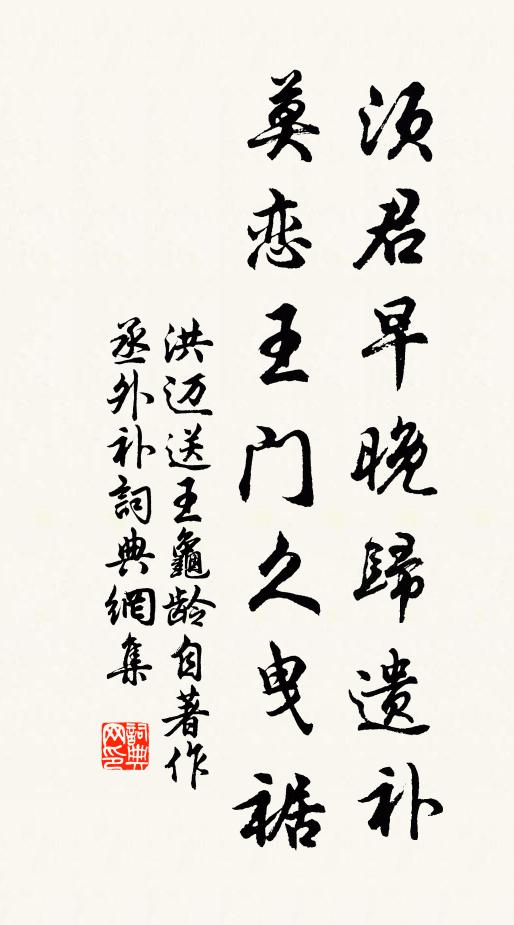 须君早晚歸遗补
莫恋王门久曳裾
洪迈送王龜龄自著作
丞外补詞典網集
詞典
网印